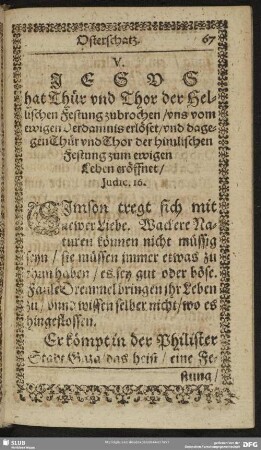 Osterschatz. 67
V.
JESVS
hat Thür vnd Thor der Hel-
lischen Festung zubrochen / vns vom
ewigen Verdamnis erlöset / vnd dage-
gen Thür vnd Thor der himlischen
Festung zum ewigen
Leben eröffnet /
Judic. 16.
SImson tregt sich mit
newer Liebe. Wackere Na-
turen können nicht müssig
seyn / sie müssen immer etwas zu
thun haben / es sey gut oder böse.
Faule bringen jhr Leben
zu / vnnd wissen selber nicht / wo es
hingeflossen.
Er kömpt in der Philister
Stadt Gaza / das heist / eine Fe-
stung /
SLUB
DFG